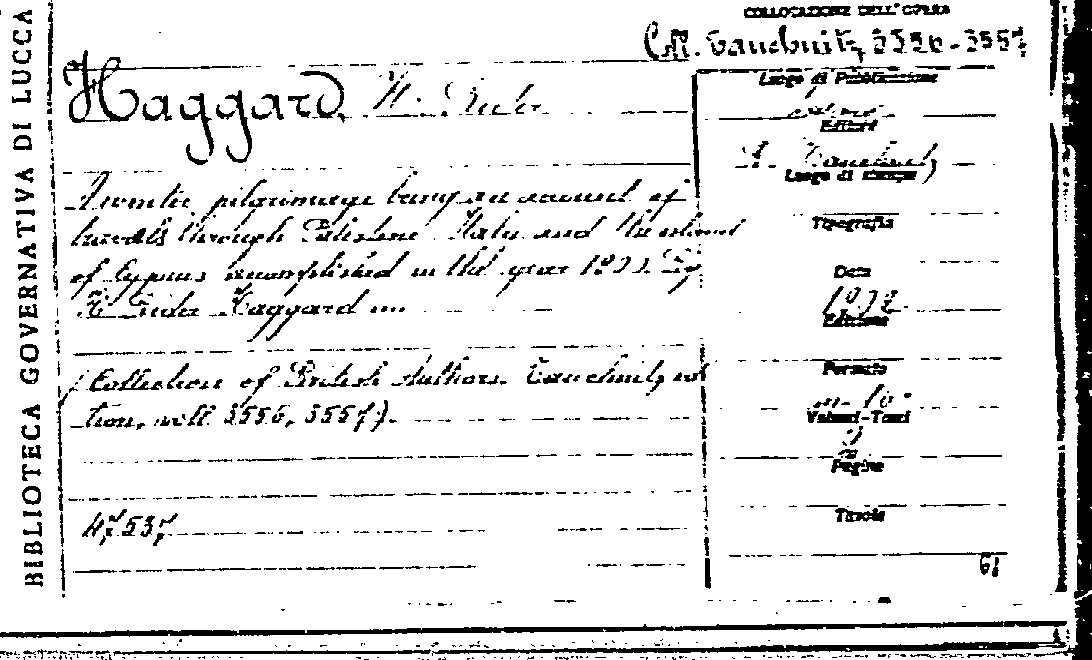 BIBLIOTECA GOVERNATIVA DI LUCCA
COLLOCAZIONE DELL'OPERA
Coll. Tauchnitz 3556-3557
Haggard, H. Rider
A winter pilgrimage being an account of
travels through Palestine Italy and the island
of Cyprus accomplished in the year 1900. By
H. Rider Haggard ....
(Collection of British Authors. Tauchnitz edi
tion, voll. 3556, 3557).
47537
Luogo di Pubblicazione
Editore
B. Tauchnitz
Luogo di stampa
Tipografia
Data
1902
Edizione
Formato
in-16°
Volumi-Tomi
2
Pagine
Tavole
61